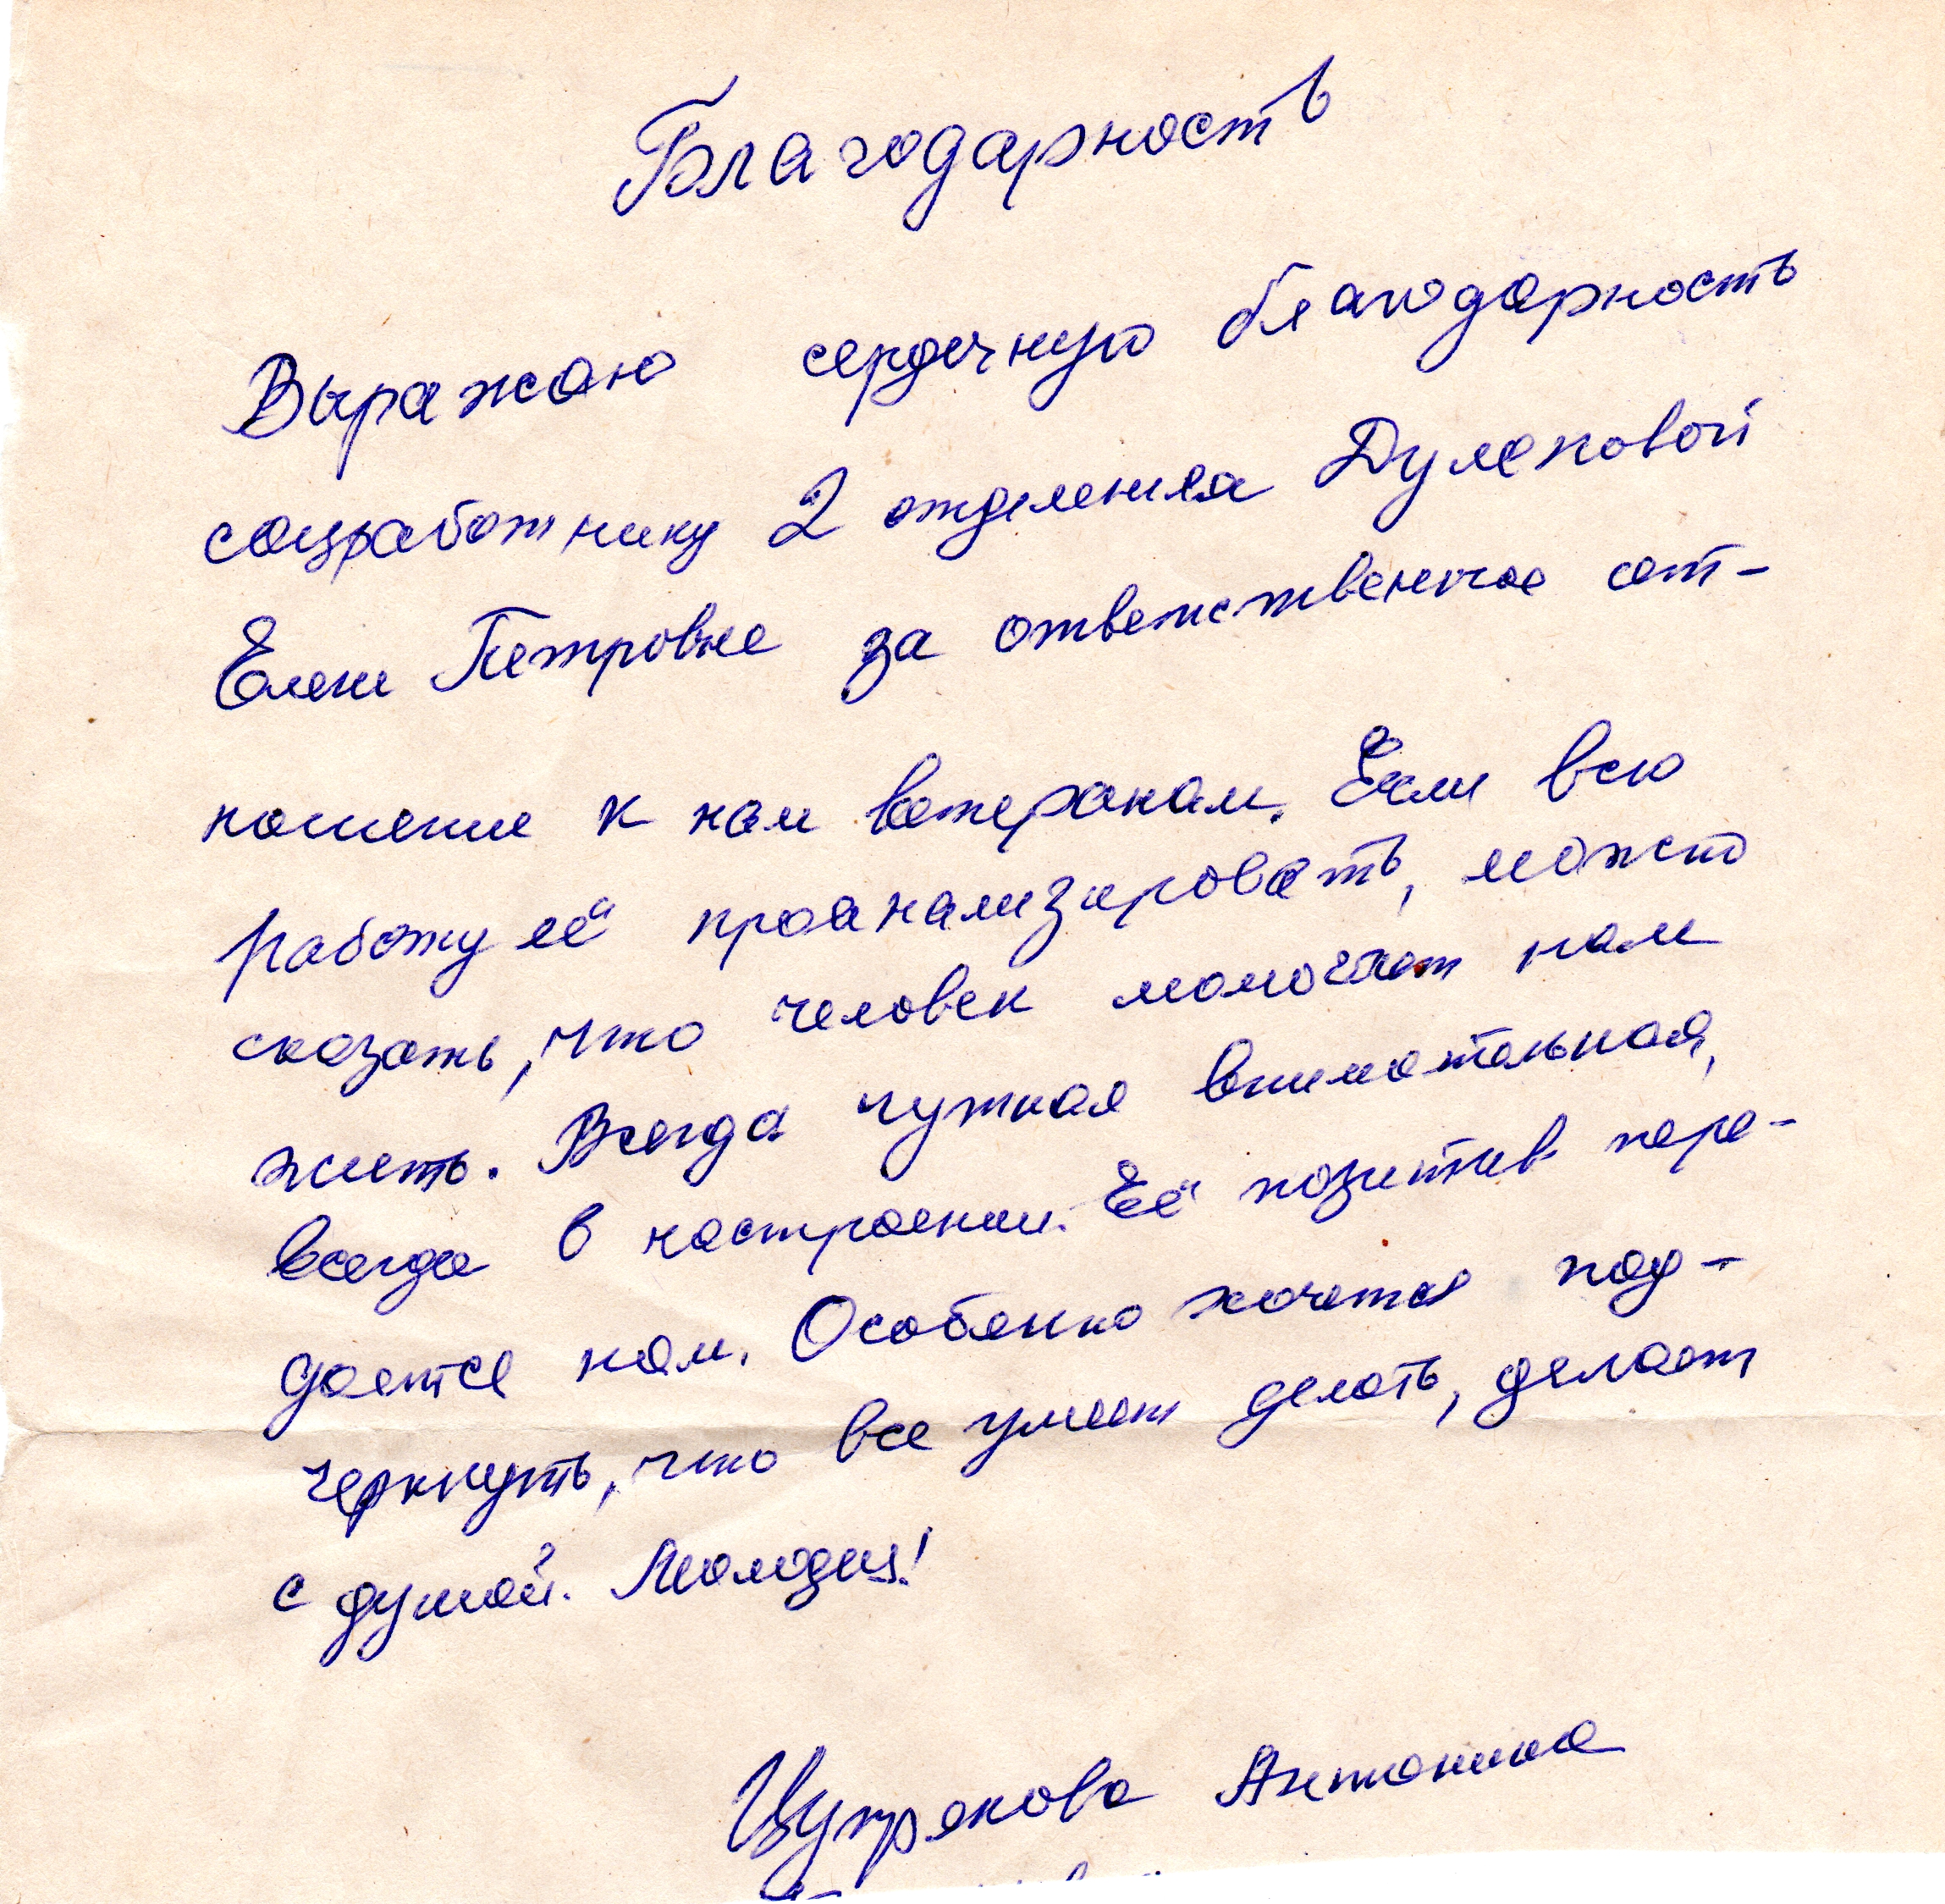 Благодарность
Выражаю сердечную благодарность
соцработнику 2 отделения Дулеповой
Елене Петровне за ответственное от-
ношение к нам ветеранам. Если всю
работу её проанализировать, можно
сказать, что человек помогает нам
жить. Всегда чуткая внимательная,
всегда в настроении. Её позитив пере-
дается нам. Особенно хочется под-
черкнуть, что все умеет делать, делает
с душой. Молодец!
Антонина